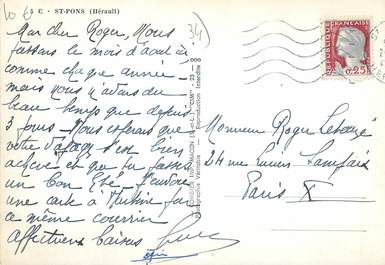 10 65
5 C - ST-PONS (Hérault)
34
Mon cher Roger, Nous
passons le mois d'août ici
comme chaque année -
mais nous n'avons du
beau temps que depuis
3 jours. Nous espérons que
votre s'est bien
achevé et que tu passes
un bon Été. J'envoie
une carte à par
ce même courrier
Affectueux baisers
IMP. MACON (S.-et-L.) "CIM"
Photographie Véritable - Reproduction Interdite
REPUBLIQUE FRANÇAISE
0,25
Monsieur Roger
24 rue Lucien Sampaix
Paris X